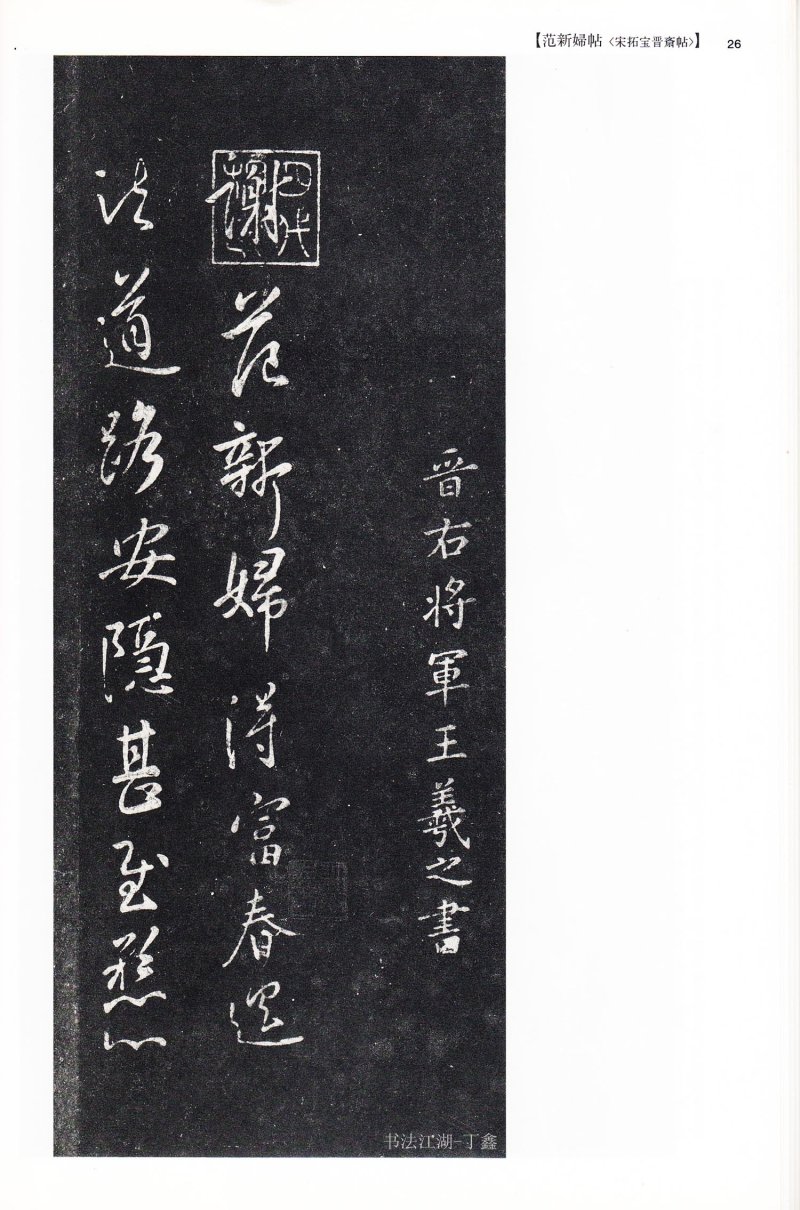 【范新婦帖〈宋拓宝晋斎帖〉】 26
晋右将軍王羲之書
四代
謝范新婦得富春還
道路安隱甚慰懸心
书法江湖-丁鑫